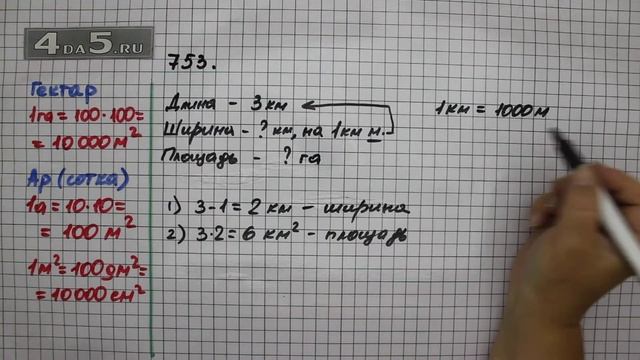 4DA5.RU
753.
Гектар
1га = 100·100=
= 10 000 м²
Ар (сотка)
1а = 10·10=
= 100 м²
1м²=100дм²=
= 10000 см²
Длина - 3 км
Ширина - ? км, на 1км м.
Площадь - ? га
1) 3-1=2 км - ширина
2) 3·2=6 км² - площадь
1км = 1000м